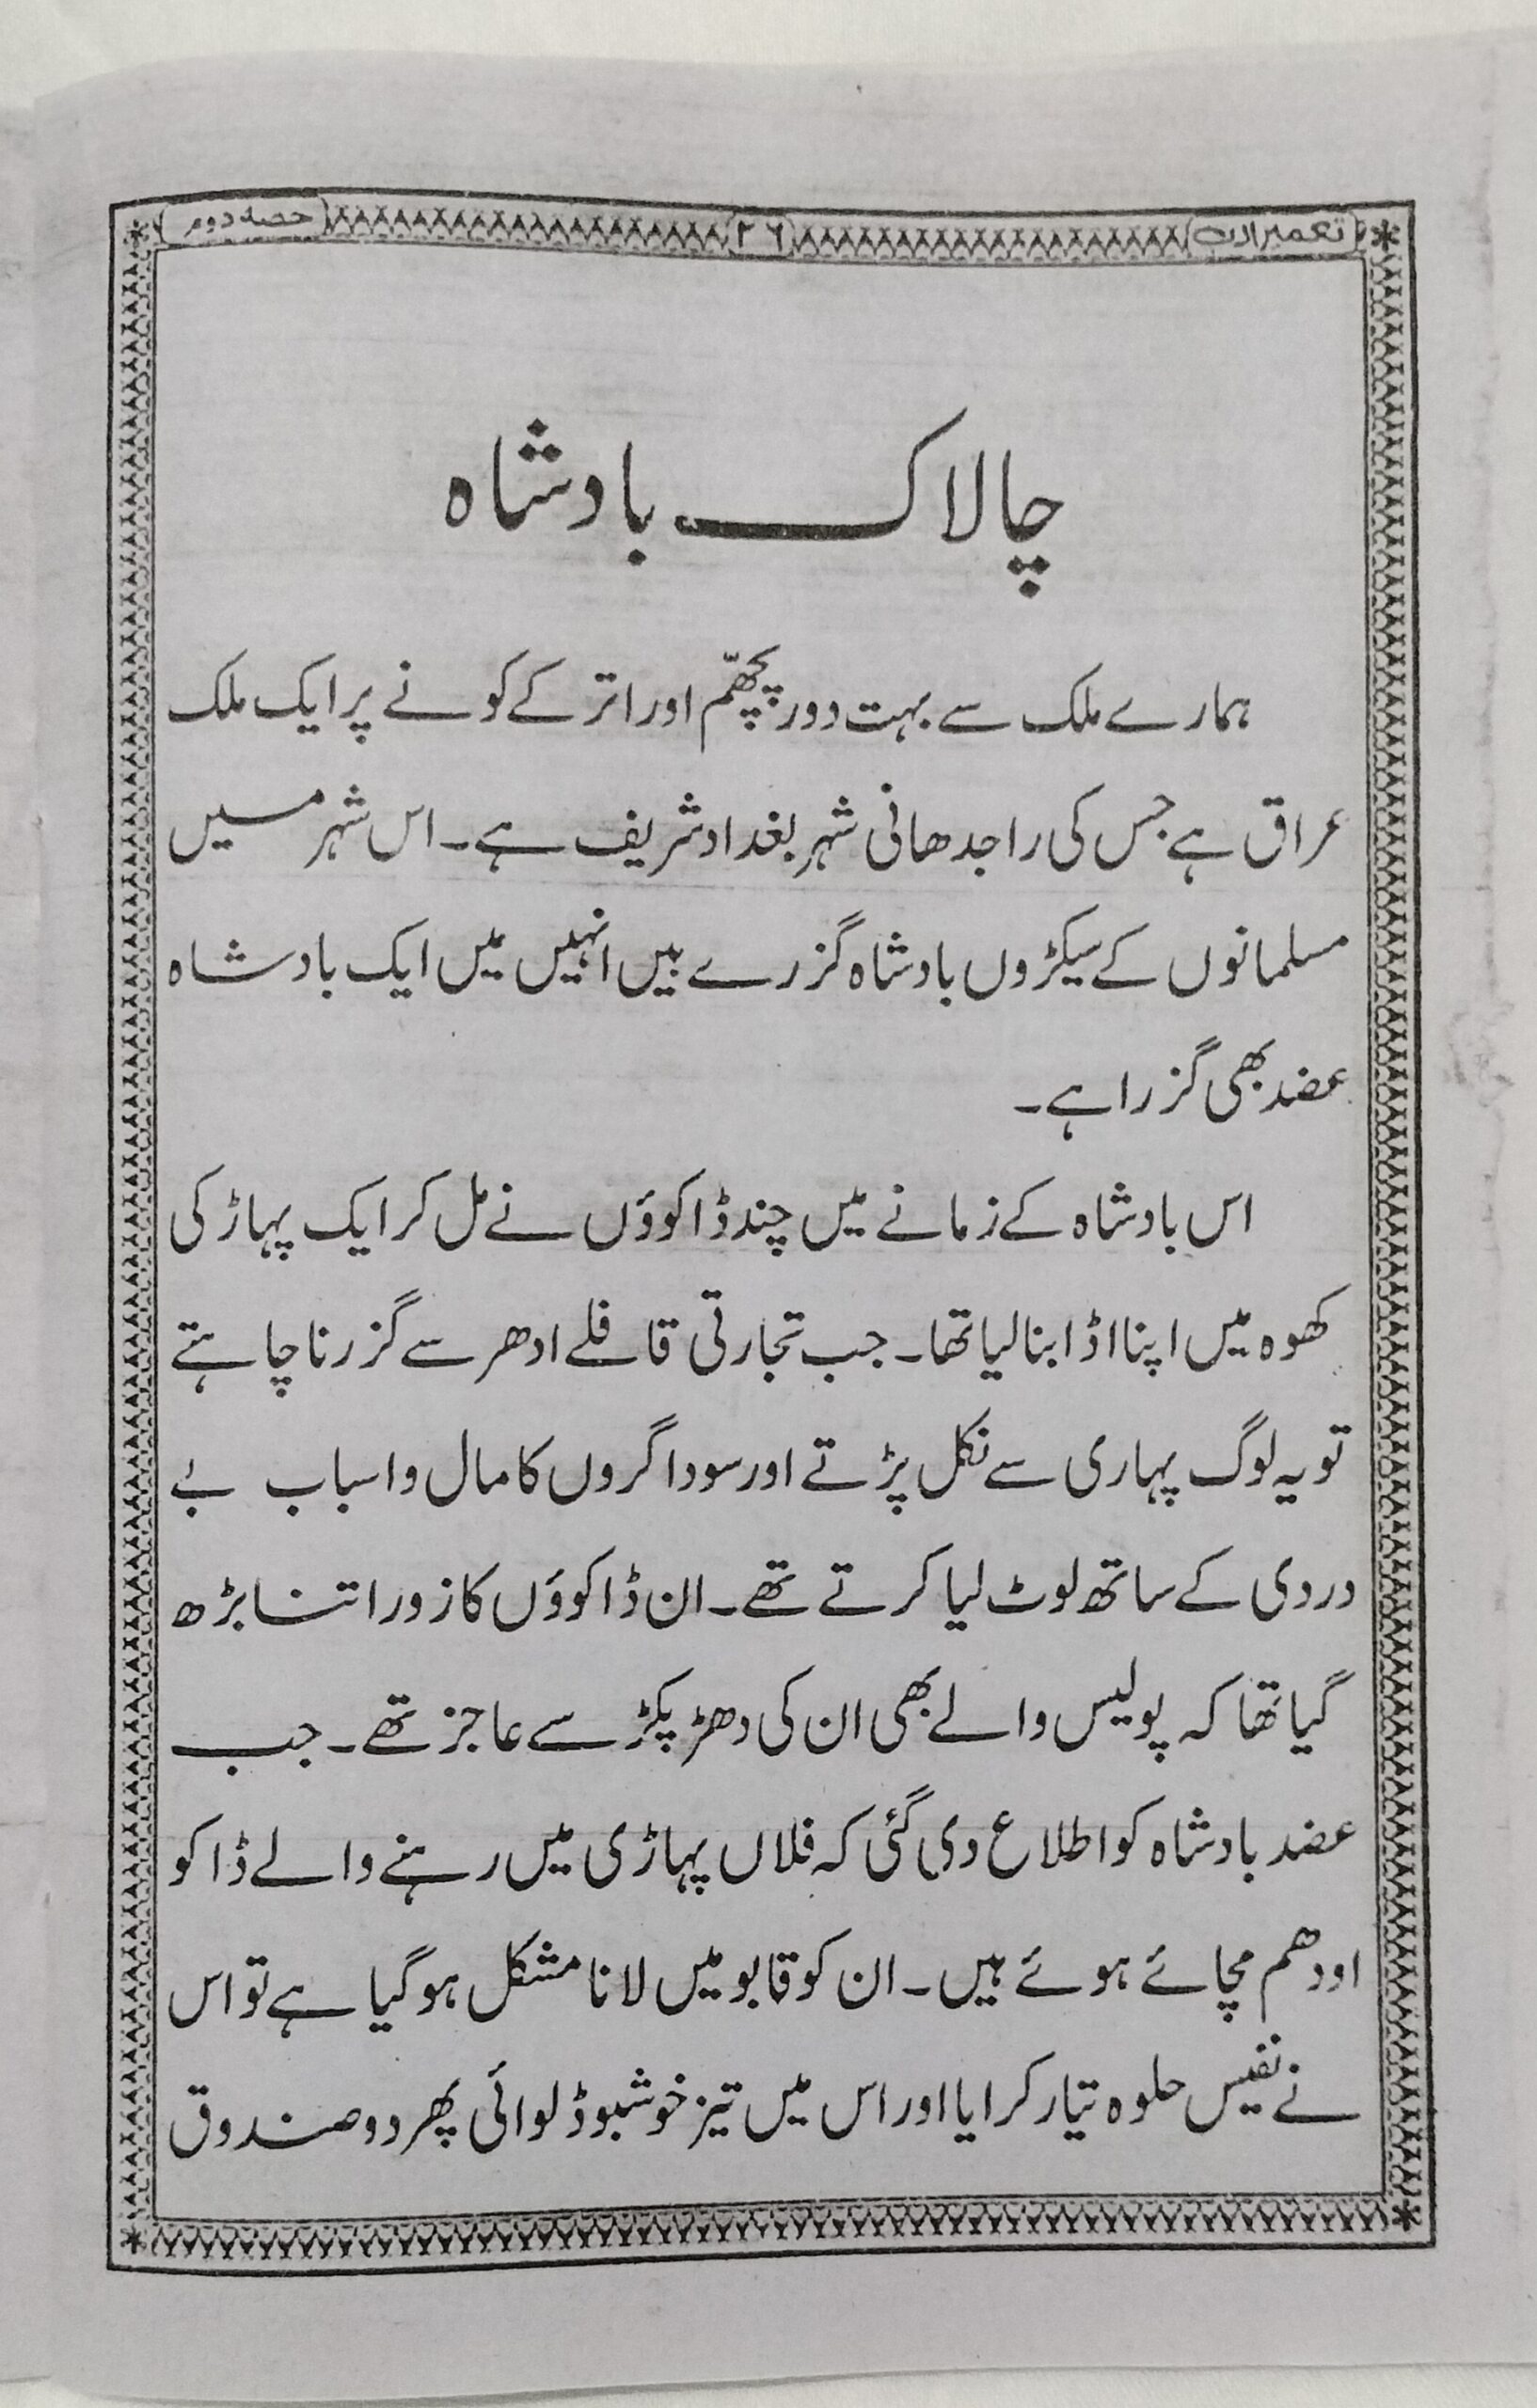 تعمیر ادب ۲۶ حصہ دوم
چالاک بادشاہ
ہمارے ملک سے بہت دور پچھّم اور اتر کے کونے پر ایک ملک
عراق ہے جس کی راجدھانی شہر بغداد شریف ہے۔ اس شہر میں
مسلمانوں کے سیکڑوں بادشاہ گزرے ہیں انہیں میں ایک بادشاہ
عضد بھی گزرا ہے۔
اس بادشاہ کے زمانے میں چند ڈاکوؤں نے مل کر ایک پہاڑ کی
کھوہ میں اپنا اڈا بنا لیا تھا۔ جب تجارتی قافلے ادھر سے گزرنا چاہتے
تو یہ لوگ پہاری سے نکل پڑتے اور سوداگروں کا مال و اسباب بے
دردی کے ساتھ لوٹ لیا کرتے تھے۔ ان ڈاکوؤں کا زور اتنا بڑھ
گیا تھا کہ پولیس والے بھی ان کی دھڑ پکڑ سے عاجز تھے۔ جب
عضد بادشاہ کو اطلاع دی گئی کہ فلاں پہاڑی میں رہنے والے ڈاکو
اودھم مچائے ہوئے ہیں۔ ان کو قابو میں لانا مشکل ہوگیا ہے تو اس
نے نفیس حلوہ تیار کرایا اور اس میں تیز خوشبو ڈلوائی پھر دو صندوق